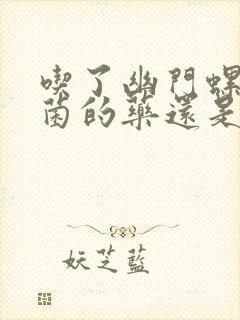 喫了幽門螺
菌的藥還是
妖芝藍